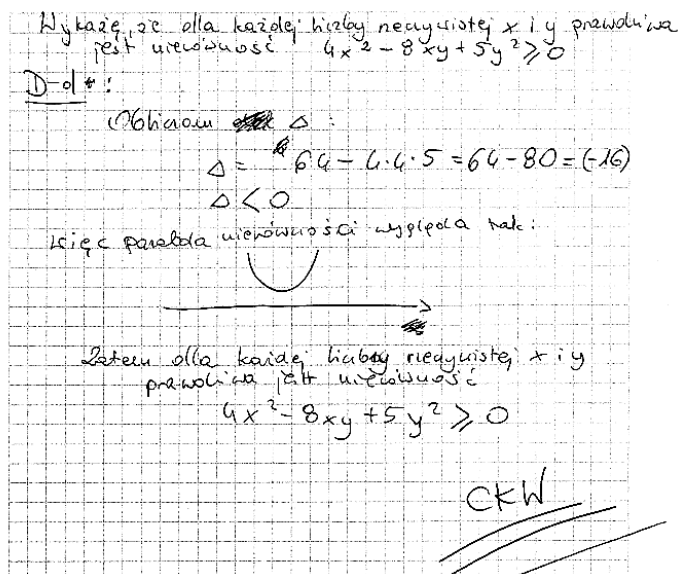 Wykażę, że dla każdej liczby rzeczywistej x i y prawdziwa
jest nierówność 4x² - 8xy + 5y² ≥ 0
D-d:
Obliczam Δ:
Δ = 64 - 4·4·5 = 64 - 80 = (-16)
Δ < 0
więc parabola nierówności wygląda tak:
Zatem dla każdej liczby rzeczywistej x i y
prawdziwa jest nierówność
4x² - 8xy + 5y² ≥ 0
CKW